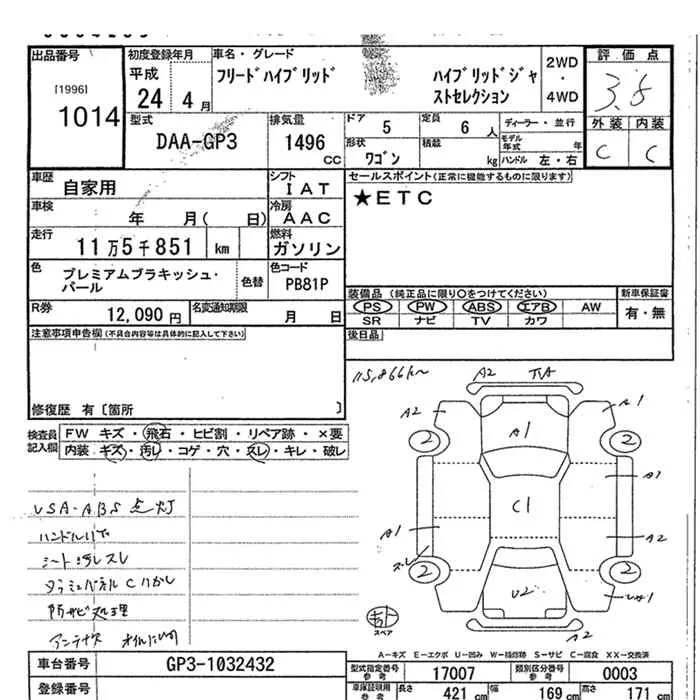 出品番号
[1996]
1014
初度登録年月
平成
24 4 月
車名・グレード
フリードハイブリッド
ハイブリッドジャ
ストセレクション
2WD
・
4WD
評価点
3.5
外装 内装
C C
型式
DAA-GP3
排気量
1496
CC
ドア
5
定員
6 人
形状
ワゴン
積載
kg
ディーラー・並行
モデル
年式 年
ハンドル 左・右
車歴
自家用
シフト
IAT
車検
年 月( 日)
冷房
AAC
走行
11万5千851 km
燃料
ガソリン
色
プレミアムブラキッシュ・
パール
色替
色コード
PB81P
R券
12,090 円
名変通知期限
月 日
セールスポイント(正常に機能するものに限ります)
★ETC
装備品 (純正品に限り○をつけてください)
PS PW ABS エアB AW
SR ナビ TV カワ
新車保証書
有・無
後日品
注意事項申告欄(不具合内容等は具体的に記入して下さい)
修復歴 有〔箇所 〕
検査員
記入欄
FW キズ・飛石・ヒビ割・リペア跡・×要
内装・キズ・汚レ・コゲ・穴・スレ・キレ・破レ
VSA・ABS 点灯
ハンドル
シート汚レスレ
防サビ処理
アンテナ
115,866km
A2
A2
A1
2
2
A1
A1
C1
A1
A2
スレ
2
2
U2
A2
スペア
A-キズ E-エクボ U-凹み W-補修跡 S-サビ C-腐食 XX-交換済
車台番号
GP3-1032432
登録番号
型式指定番号
参考
17007
類別区分番号
参考
0003
車庫証明用
参考
長さ
421 cm
幅
169 cm
高さ
171 cm